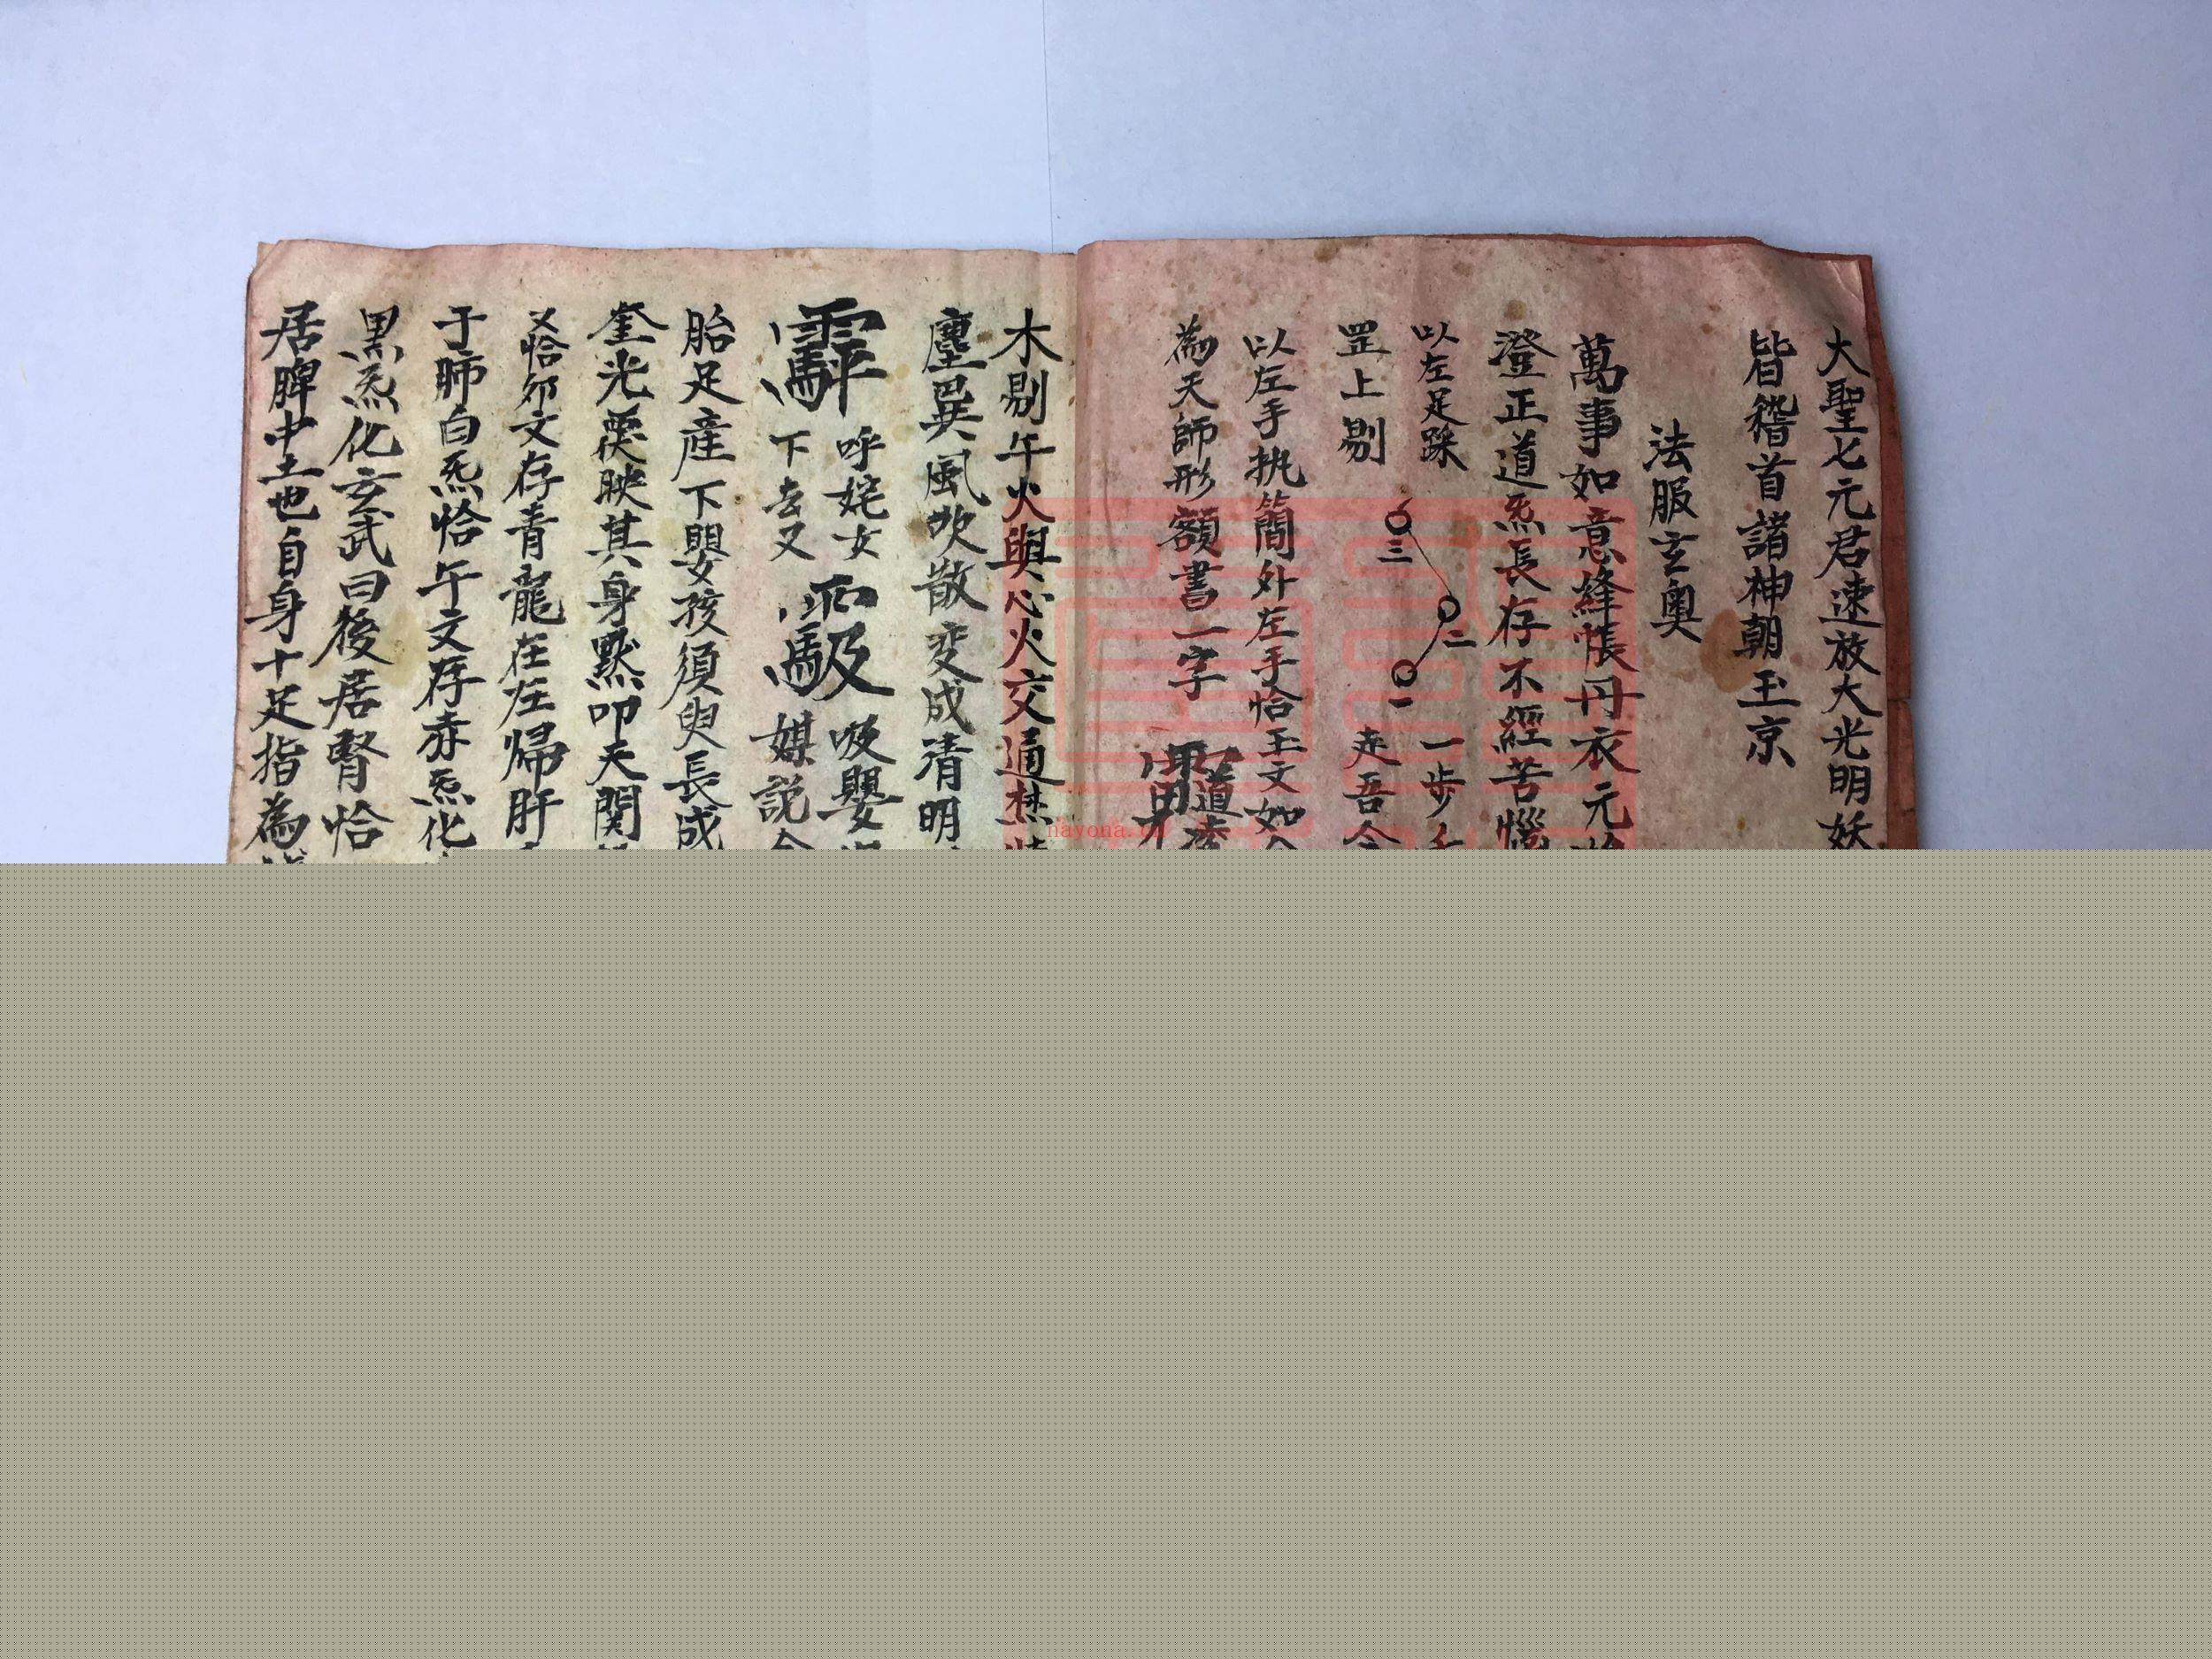 大聖七元君速放大光明妖
皆稽首諸神朝玉京
法服玄奧
萬事如意絳帳丹衣元
澄正道炁長存不經苦惱
以左足踩 三 二 一 一步
罡上剔 走吾
以左手执簡外左手恰玉文如
為天師形額書一字
木剔午火與心火交通焚
塵巽風吹散变成清明
呼姹女 吸嬰
下去又 媒説
胎足産下嬰孩須臾長成
奎光 映其身黙叩天関
又恰卯文存青龍在左帰肝
于肺白炁恰午文存赤炁化
黒炁化玄武曰後居腎恰
居脾中土也自身十足指為
nayona.cn